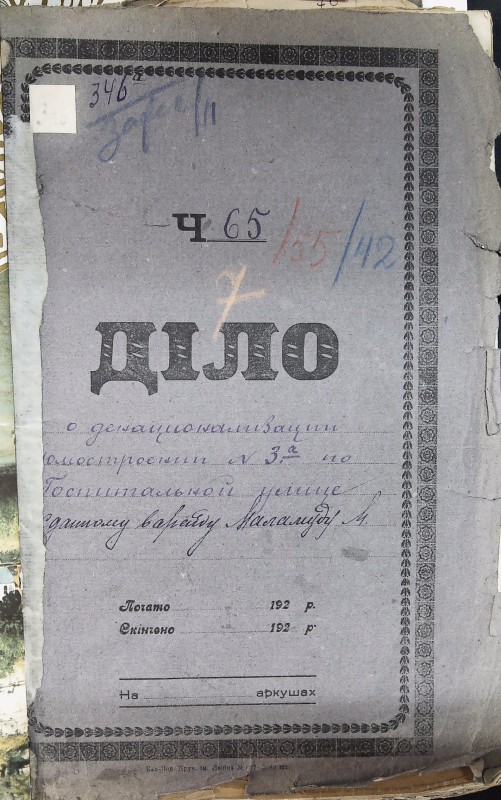 346а
Ч 65 /55/42
7
ДІЛО
о денационализации
омостроении N 3.а по
Госпитальной улице
сданному в аренду Маламуду М.
Почато 192 р.
Скінчено 192 р.
На аркушах